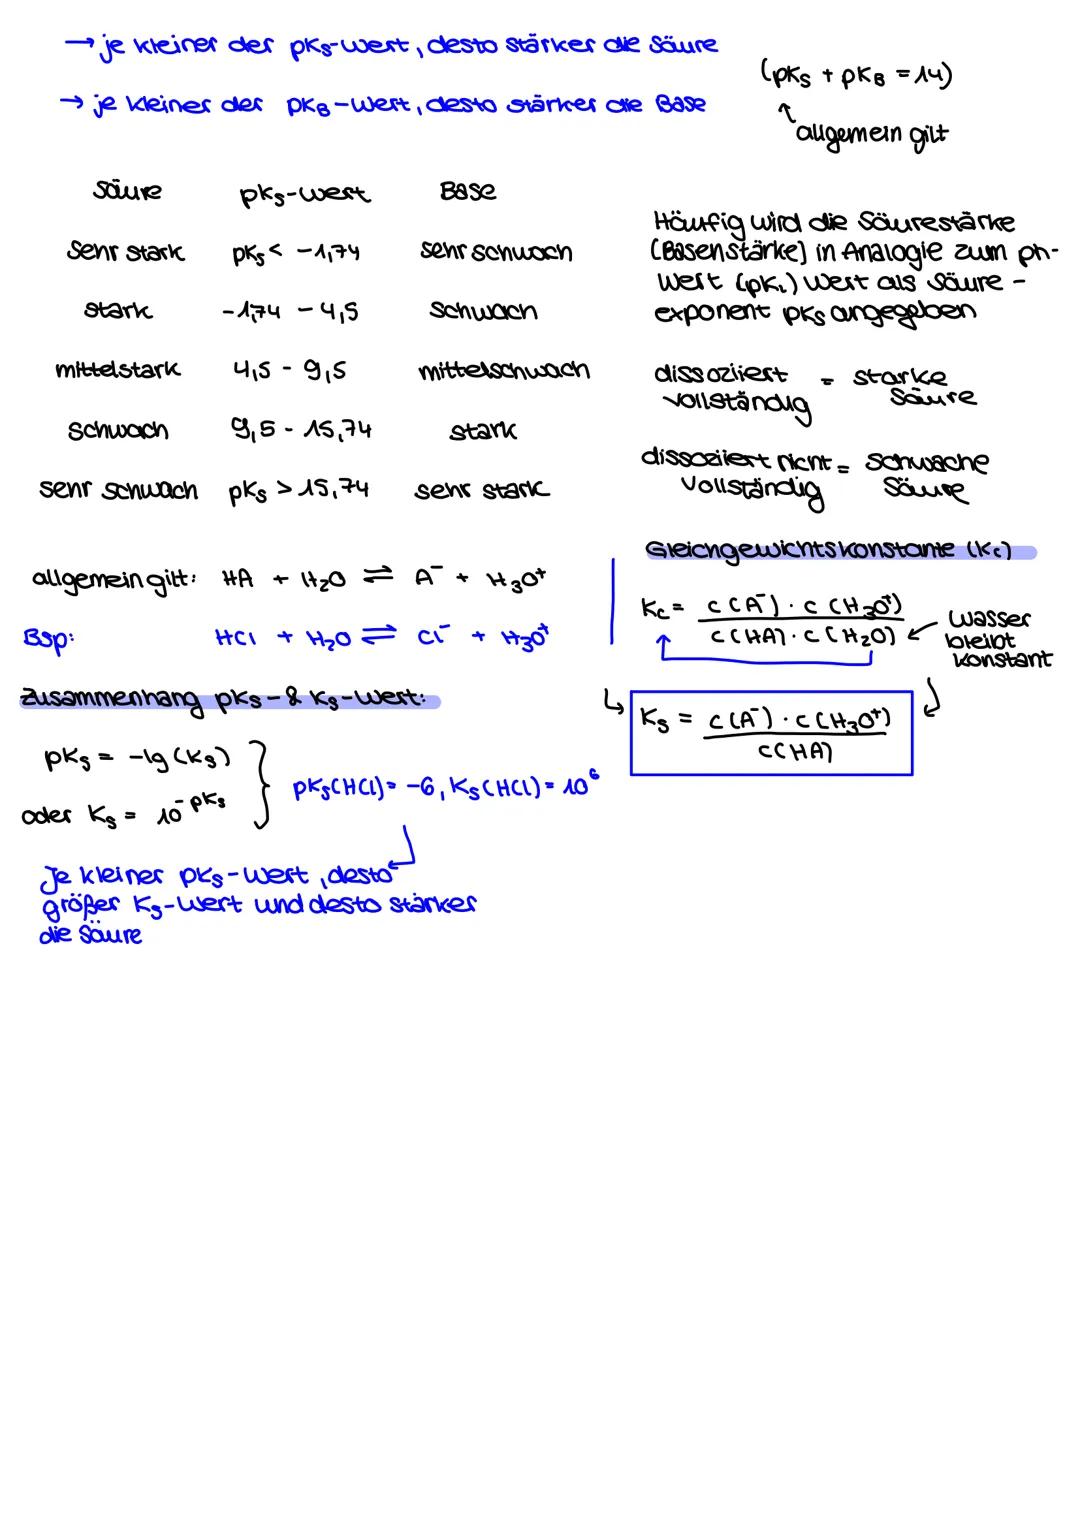 → je kleiner der pKs-Wert, desto stärker die Säure
→ je kleiner der pKB-Wert, desto stärker die Base
(pKs + pKB = 14)
allgemein gilt
Säure pKs-Wert Base
sehr stark pKs < -1,74 sehr schwach
stark -1,74 - 4,5 schwach
mittelstark 4,5 - 9,5 mittelschwach
schwach 9,5 - 15,74 stark
sehr schwach pKs > 15,74 sehr stark
Häufig wird die Säurestärke
(Basenstärke) in Analogie zum ph-
Wert Wert als Säure-
exponent pKs angegeben
dissoziiert = starke
vollständig Säure
dissoziiert nicht = schwache
vollständig Säure
allgemein gilt: HA + H₂O ⇌ A⁻ + H₃O⁺
Bsp: HCl + H₂O ⇌ Cl⁻ + H₃O⁺
Gleichgewichtskonstante (Kc)
Kc = c(A⁻) · c(H₃O⁺)
c(HA) · c(H₂O)
Wasser
bleibt
konstant
Ks = c(A⁻) · c(H₃O⁺)
c(HA)
Zusammenhang pKs- & Ks-Wert:
pKs = -lg(Ks)
oder Ks = 10^-pKs
pKs(HCl) = -6, Ks(HCl) = 10⁶
Je kleiner pKs-Wert, desto
größer Ks-Wert und desto stärker
die Säure